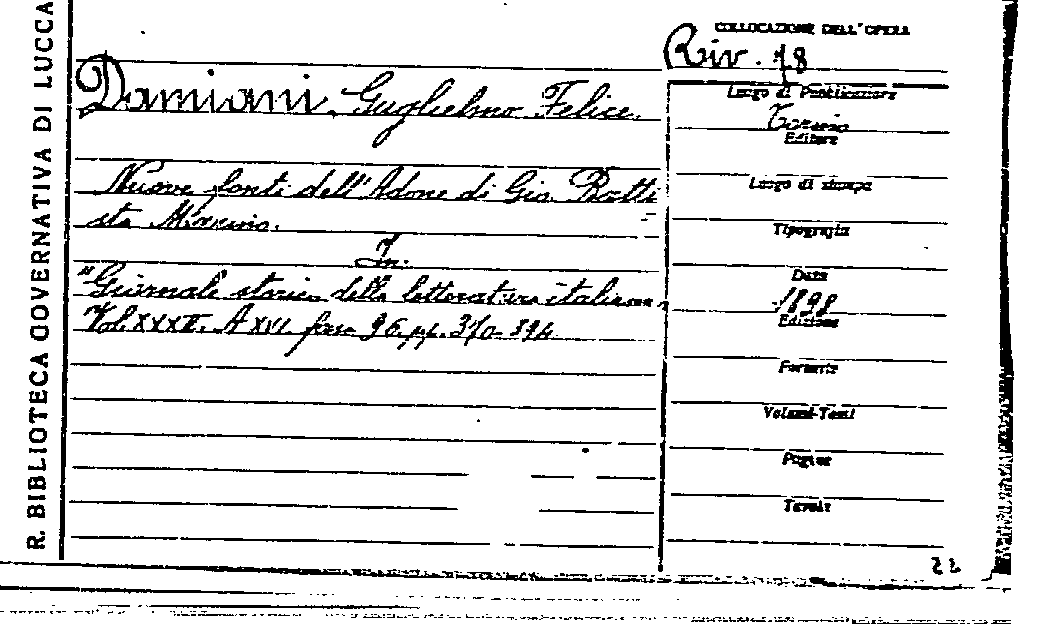 R. BIBLIOTECA GOVERNATIVA DI LUCCA
COLLOCAZIONE DELL'OPERA
Riv. 18
Damiani Guglielmo Felice.
Nuove fonti dell'Adone di Gio. Batti
sta Marino.
In:
"Giornale storico della letteratura italiana,
Vol. XXXII. A XVI fasc 96. pp. 370-394
Luogo di Pubblicazione
Torino
Editore
Luogo di stampa
Tipografia
Data
1898
Edizione
Formato
Volumi-Tomi
Pagine
Tavole
22